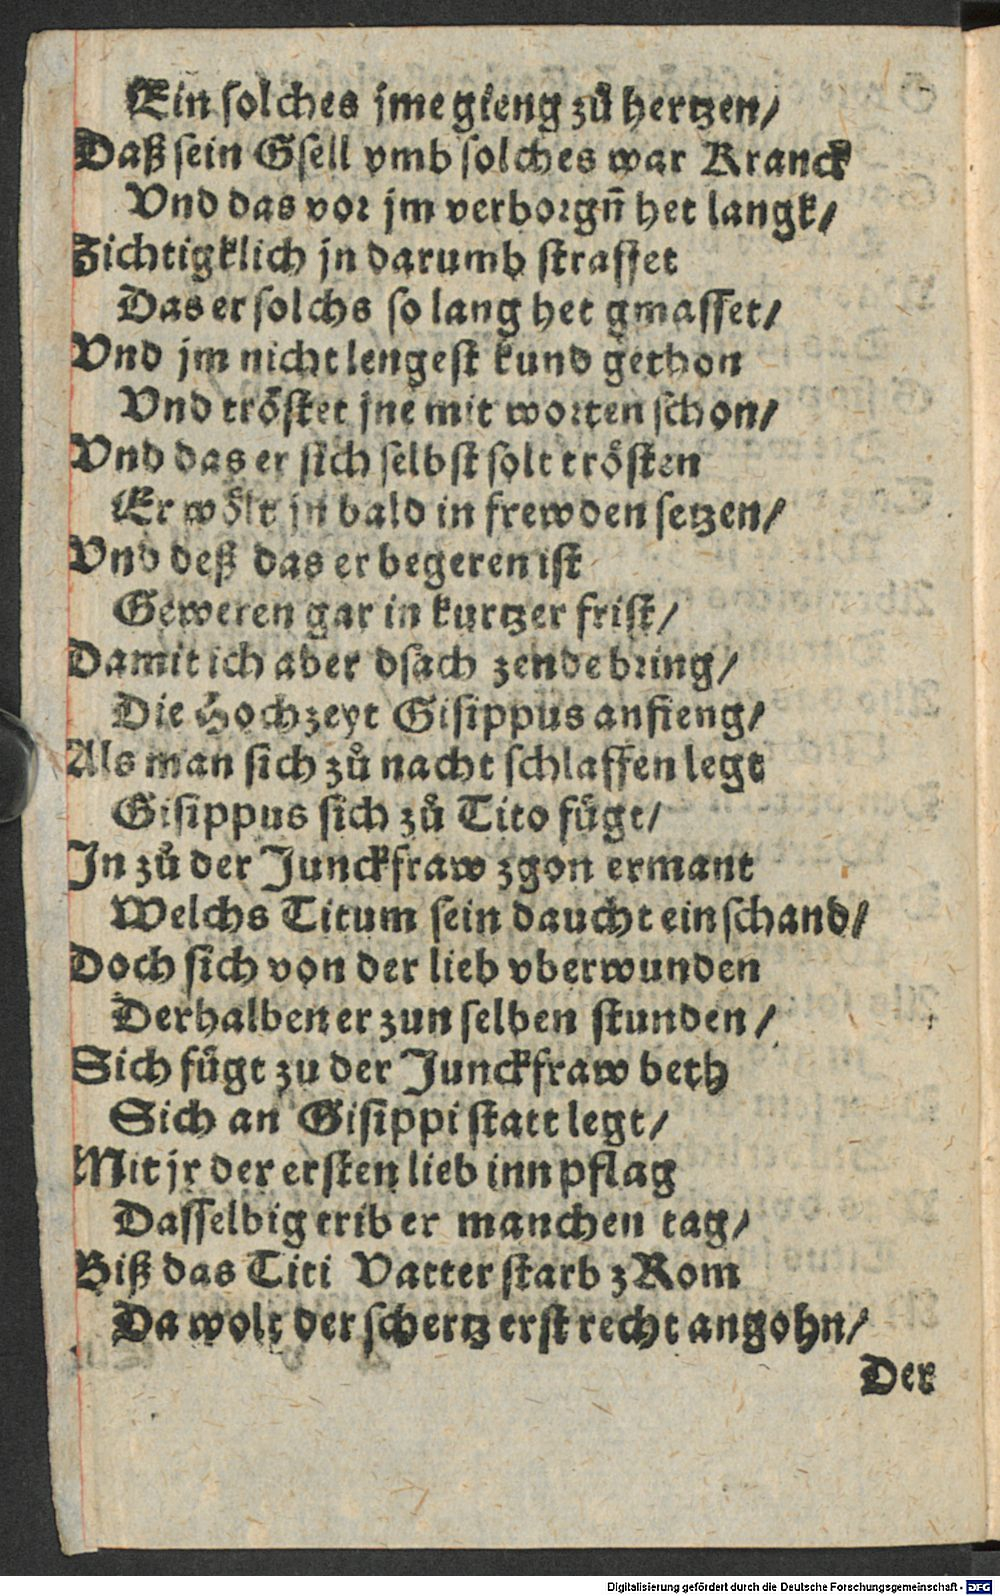 Ein solches jme gieng zů hertzen/
Daß sein Gsell vmb solches war Kranck
Vnd das vor jm verborgñ het langk/
Zichtigklich jn darumb straffet
Das er solchs so lang het gmasset/
Vnd jm nicht lengest kund gethon
Vnd tröstet jne mit worten schon/
Vnd das er sich selbst solt trösten
Er wölt jn bald in frewden setzen/
Vnd deß das er begeren ist
Geweren gar in kurtzer frist/
Damit ich aber dsach zende bring/
Die Hochzeyt Gisippus anfieng/
Als man sich zů nacht schlaffen legt
Gisippus sich zů Tito fügt/
Jn zů der Junckfraw zgon ermant
Welchs Titum sein daucht ein schand/
Doch sich von der lieb vberwunden
Derhalben er zun selben stunden/
Sich fügt zu der Junckfraw beth
Sich an Gisippi statt legt/
Mit jr der ersten lieb inn pflag
Dasselbig trib er manchen tag/
Biß das Titi Vatter starb zRom
Da wolt der schertz erst recht angohn/
Der
Digitalisierung gefördert durch die Deutsche Forschungsgemeinschaft - DFG